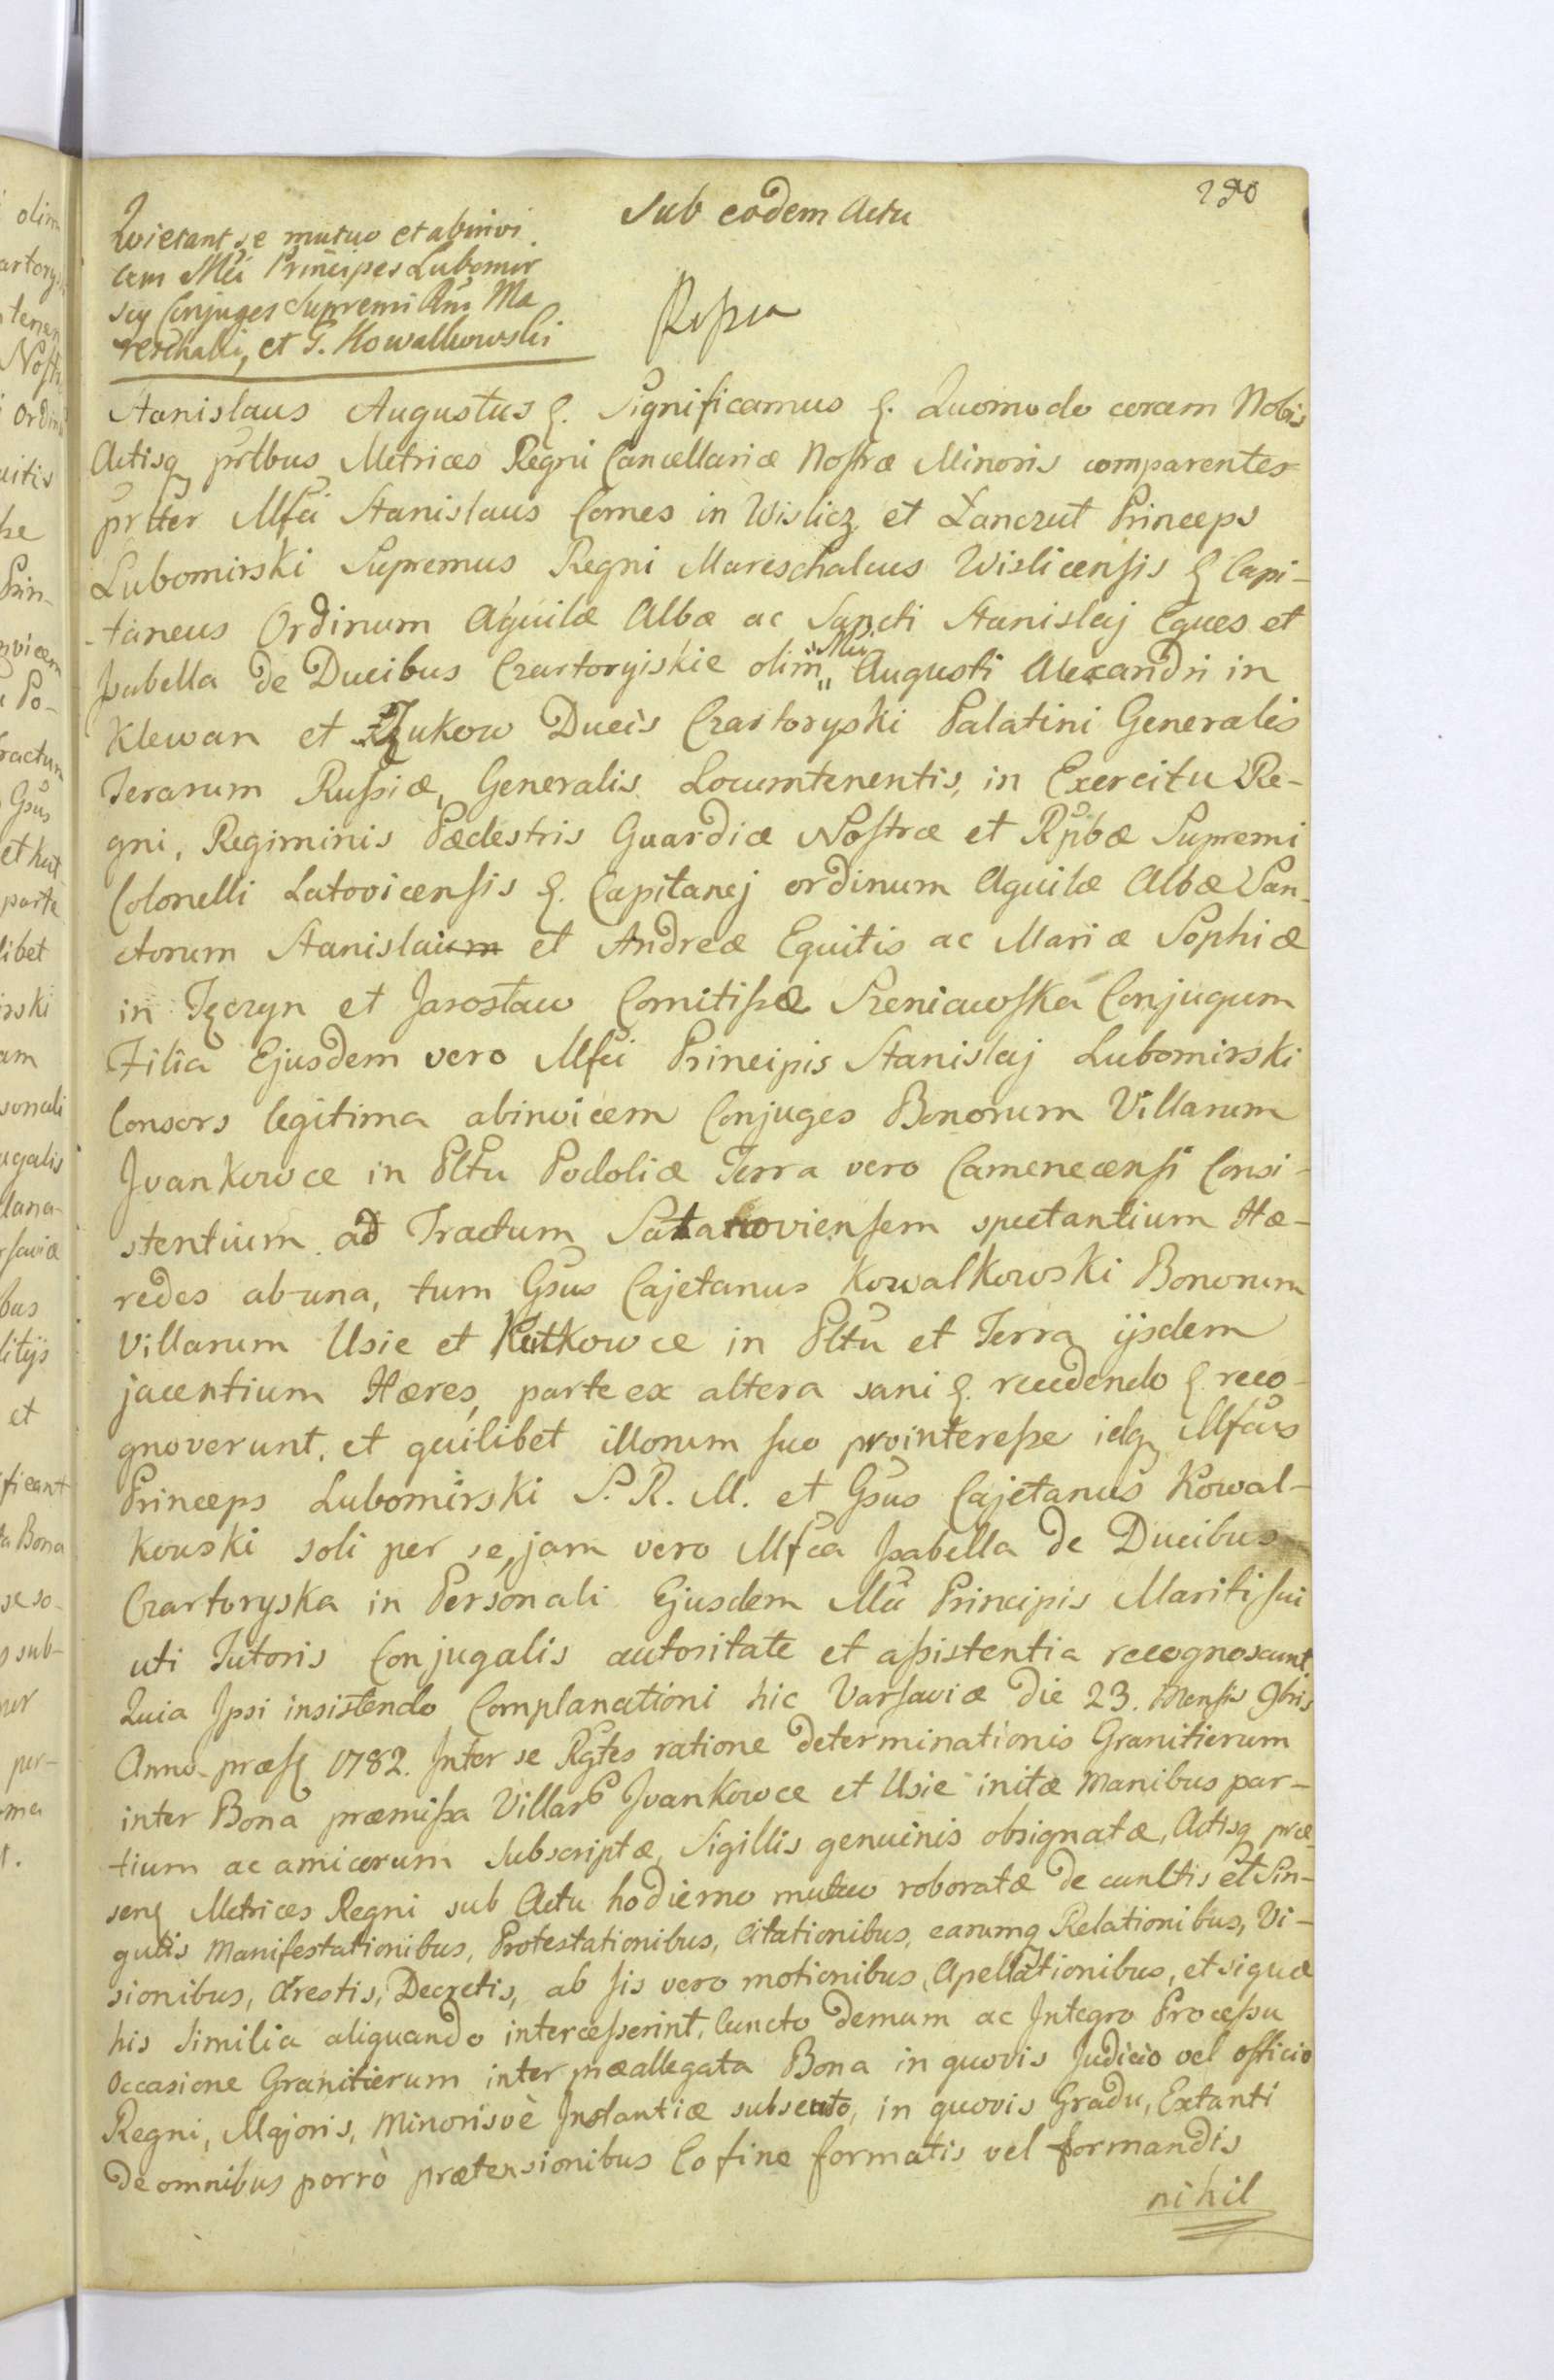 290
Sub eodem Actu
Quietant se mutuo et abinvi
cem Mci Principes Lubomir
scy Conjuges Supremi Rni Ma
reschalli, et G. Kowalkowski
Stanislaus Augustus &. Significamus &. Quomodo coram Nobis
Actisq prtbus Metrices Regni Cancellariæ Nostræ Minoris comparentes
prtter Mfci Stanislaus Comes in Wislicz et Łanczut Princeps
Lubomirski Supremus Regni Mareschalcus Wislicensis & Capi-
-taneus Ordinum Aquilæ Albæ ac Sancti Stanislaj Eques et
Isabella de Ducibus Czartoryiskie olim Mci Augusti Alexandri in
Klewan et Zukow Ducis Czartoryski Palatini Generalis
Terarum Russiæ, Generalis Locumtenentis, in Exercitu Re-
gni, Regiminis Pædestris Guardiæ Nostræ et Rpbæ Supremi
Colonelli Latovicensis &. Capitanej ordinum Aquilæ Albæ San-
ctorum Stanislaium et Andreæ Equitis ac Mariæ Sophiæ
in Tęczyn et Jarosław Comitissæ Sieniawska Conjugum
Filia Ejusdem vero Mfci Principis Stanislaj Lubomirski
Consors legitima abinvicem Conjuges Bonorum Villarum
Ivankowce in Pltu Podoliæ Terra vero Camenecensi Consi-
stentium ad Tractum Satanoviensem spectantium Hæ-
redes ab una, tum Gsus Cajetanus Kowalkowski Bonorum
Villarum Usie et Kutkowce in Pltu et Terra ijsdem
jacentium Hæres, parte ex altera sani &. recedendo &. reco-
gnoverunt. et quilibet illorum suo prointeresse idq Mfcus
Princeps Lubomirski S. R. M. et Gsus Cajetanus Kowal-
kowski soli per se, jam vero Mfca Isabella de Ducibus
Czartoryska in Personali Ejusdem Mci Principis Mariti sui
uti Tutoris Conjugalis autoritate et assistentia recognoscunt
Quia Ipsi insistendo Complanationi hic Varsaviæ Die 23. Mensis 9bris
Anno præs 1782. Inter se Rgtes ratione determinationis Granitierum
inter Bona præmissa Villar Ivankowce et Usie initæ Manibus par-
tium ac amicorum Subscriptæ, Sigillis genuinis obsignatæ, Actisq præ-
sen Metrices Regni sub Actu hodierno mutuo roboratæ de cunctis et Sin-
gulis Manifestationibus, Protestationibus, Citationibus, earumq Relationibus, Vi-
sionibus, Arestis, Decretis, ab Iis vero motionibus, Apellationibus, et siquæ
his Similia aliquando intercesserint, Cuncto demum ac Integro Processu
Occasione Granitierum inter præallegata Bona in quovis Judicio vel officio
Regni, Majoris, Minorisvè Instantiæ subsecuto, in quovis Gradu, Extanti
De omnibus porrò prætensionibus Eo fine formatis vel formandis
nihil